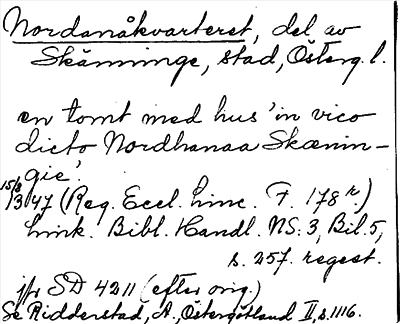 Nordanåkvarteret, del av
Skänninge, stad, Österg. l.
en tomt med hus 'in vico
dicto Nordhanaa Skænin-
gie'.
15/8
1347 (Reg. Eccl. Linc. F. 178 r.)
Link. Bibl. Handl. NS. 3, Bil. 5,
s. 257. regest.
jfr SD 4211 (efter orig.)
Se Ridderstad, A., Östergötland II, s. 1116.